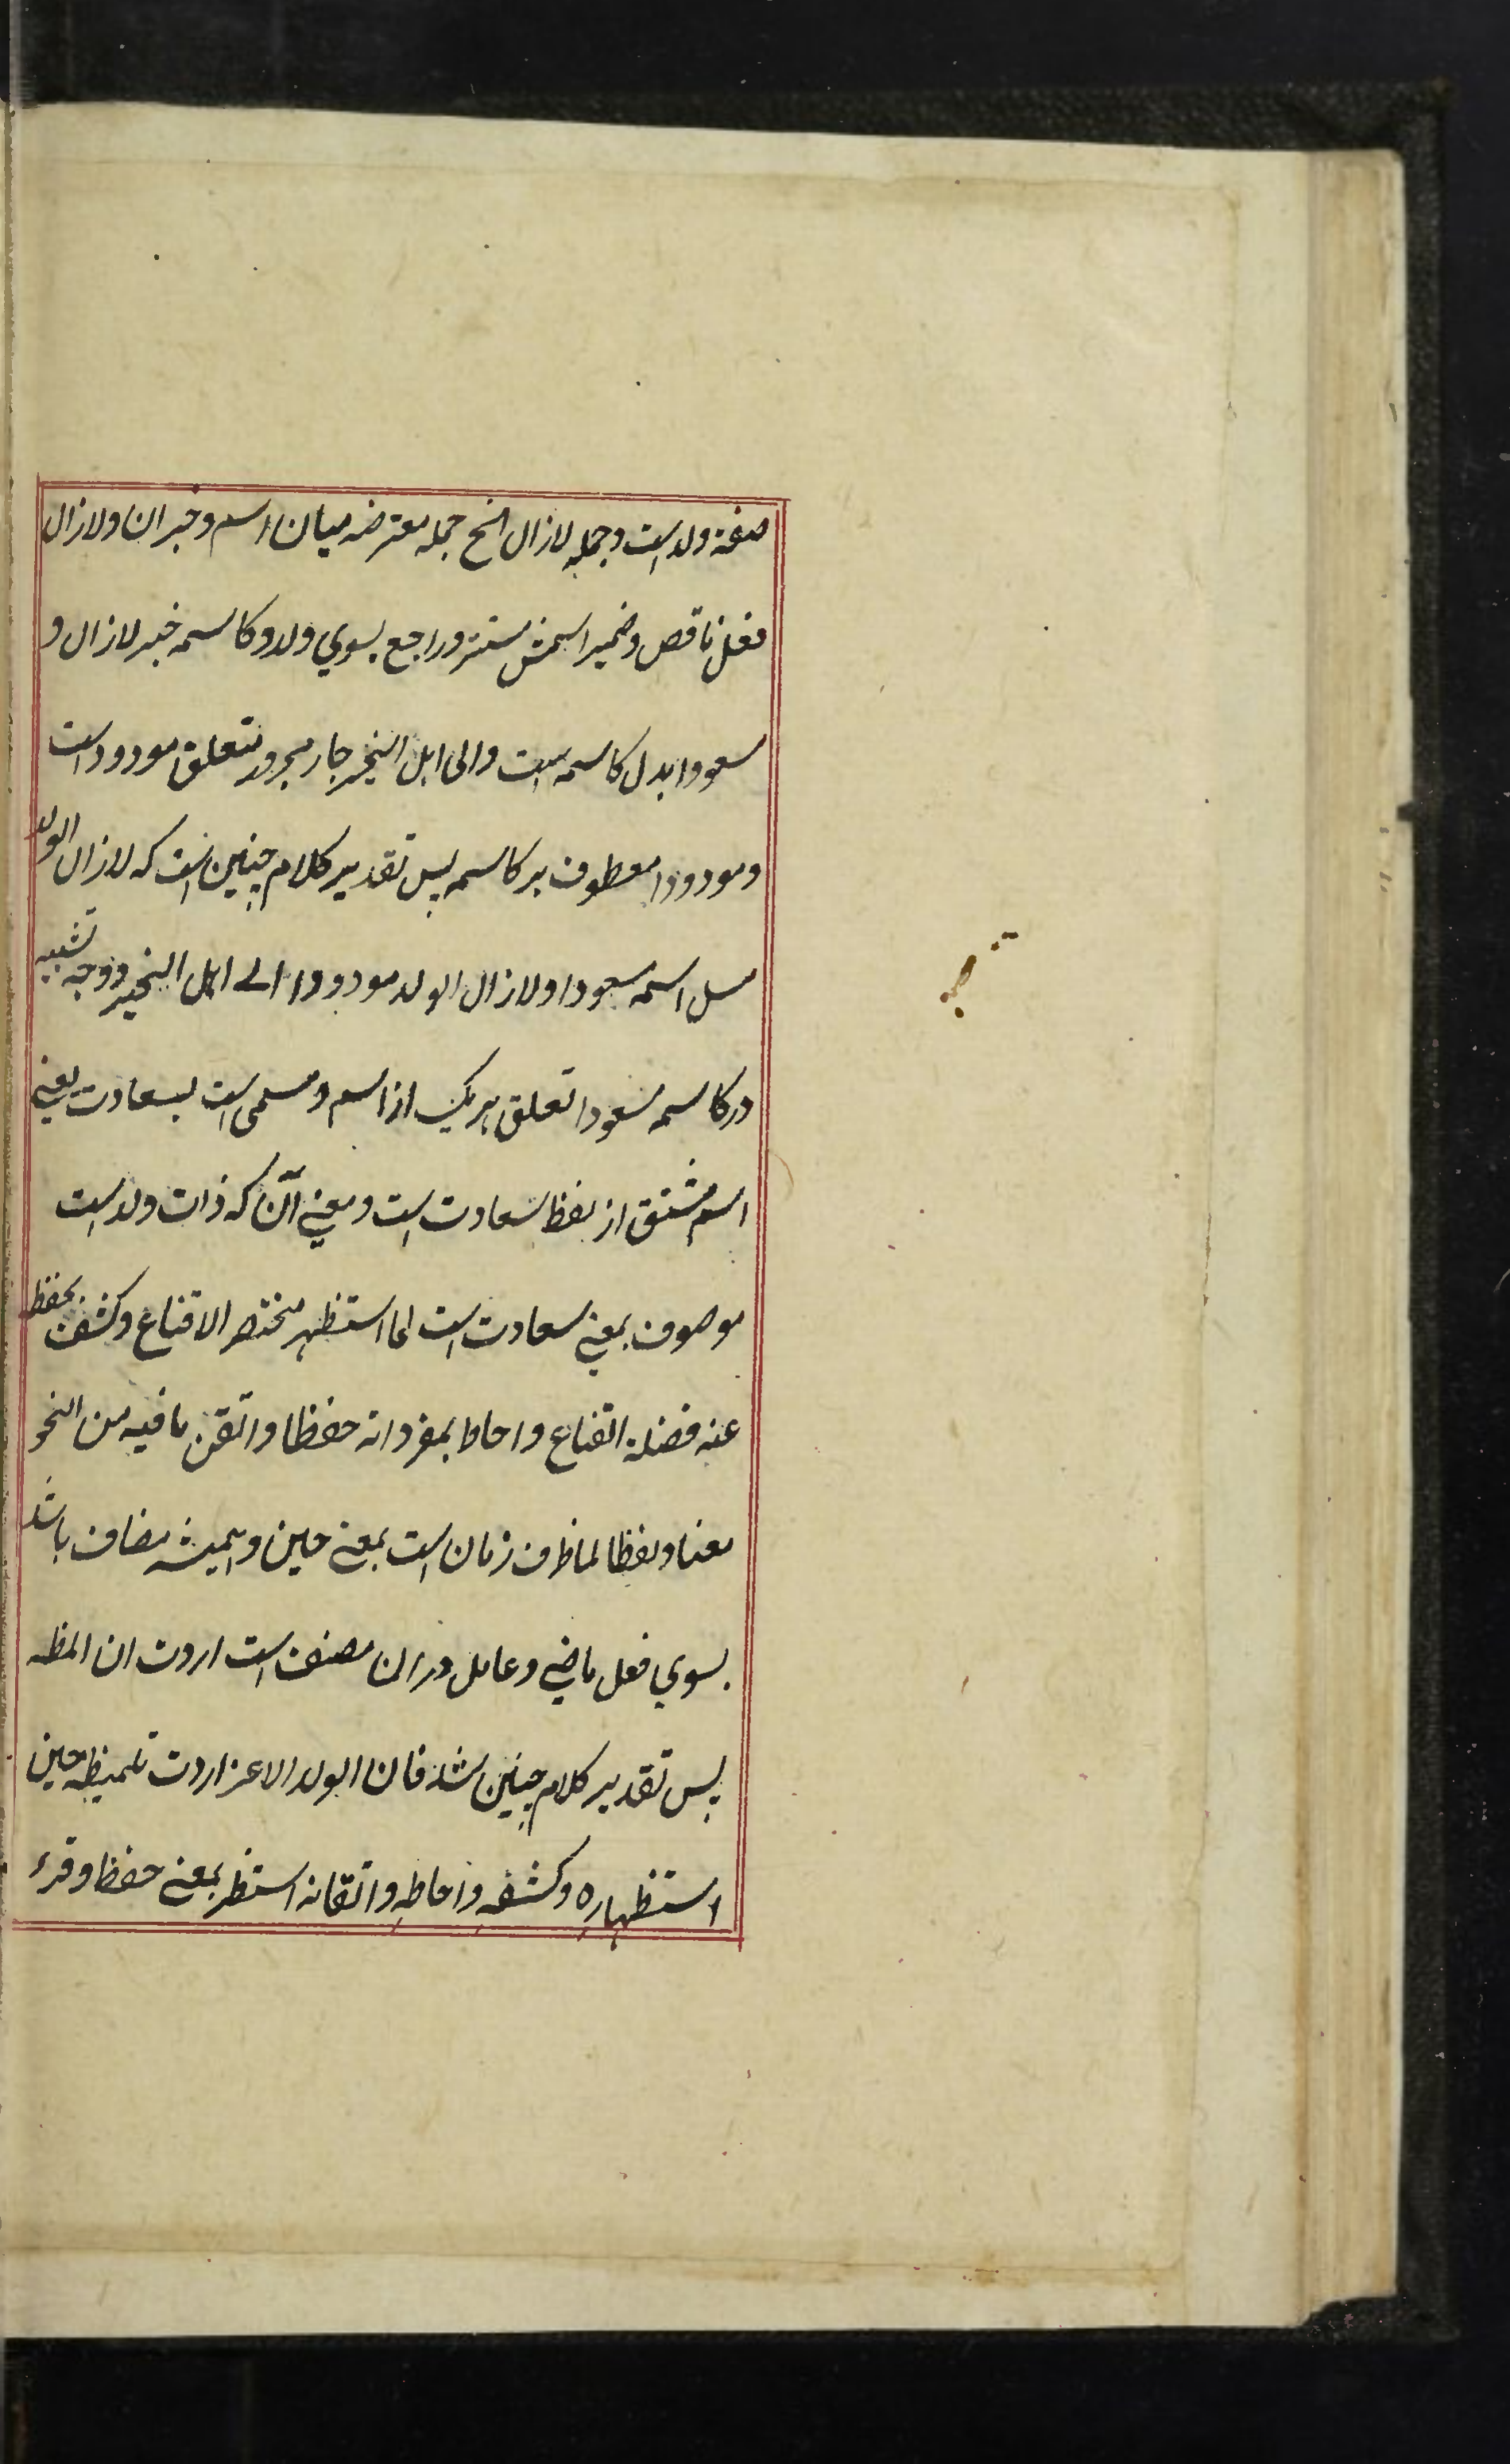 صفة ولد است و جمله لازال الخ جمله معترضه میان اسم و خبر ان و لازال
فعل ناقص و ضمیر اسمش مستتر و راجع بسوي ولد و کاسمه خبر لازال و
سعودا بدل کاسمه است و الی اهل الخیر جار مجرور متعلق مودود است
و مودودا معطوف بر کاسمه پس تقدیر کلام چنین است که لازال الولد
مسل اسمه مسعودا و لازال الولد مودودا الے اهل الخیر و وجه تشبیه
در کاسمه مسعودا تعلق هر یک از اسم و مسمی است بسعادت یعنے
اسم مشتق از لفظ سعادت است و معنے آن که ذات ولد است
موصوف بمعنے سعادت است لما استظهر مختصر الاقناع و کشف بحفظه
عنه فضلة القناع و احاط بمفرداته حفظا و اتقن ما فیه من النحو
معنا و لفظا لما ظرف زمان است بمعنے حین و همیشه مضاف باشد
بسوي فعل ماضے و عامل در ان مصنف است اردت ان المظه
پس تقدیر کلام چنین شد فان الولد الاعز اردت تلمیظه حین
استظهاره و کشفه و احاطه و اتقانه استظهر بمعنے حفظ و قرء